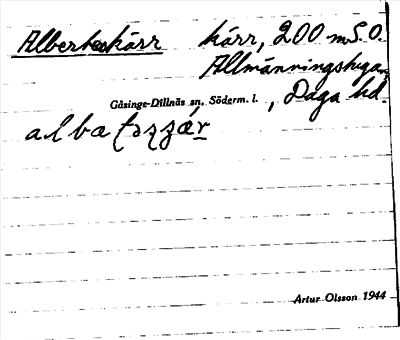 Alberteskärr kärr, 200 m S.O.
Allmänningstugan
Gåsinge-Dillnäs sn, Söderm. l. , Daga hd.
Artur Olsson 1944